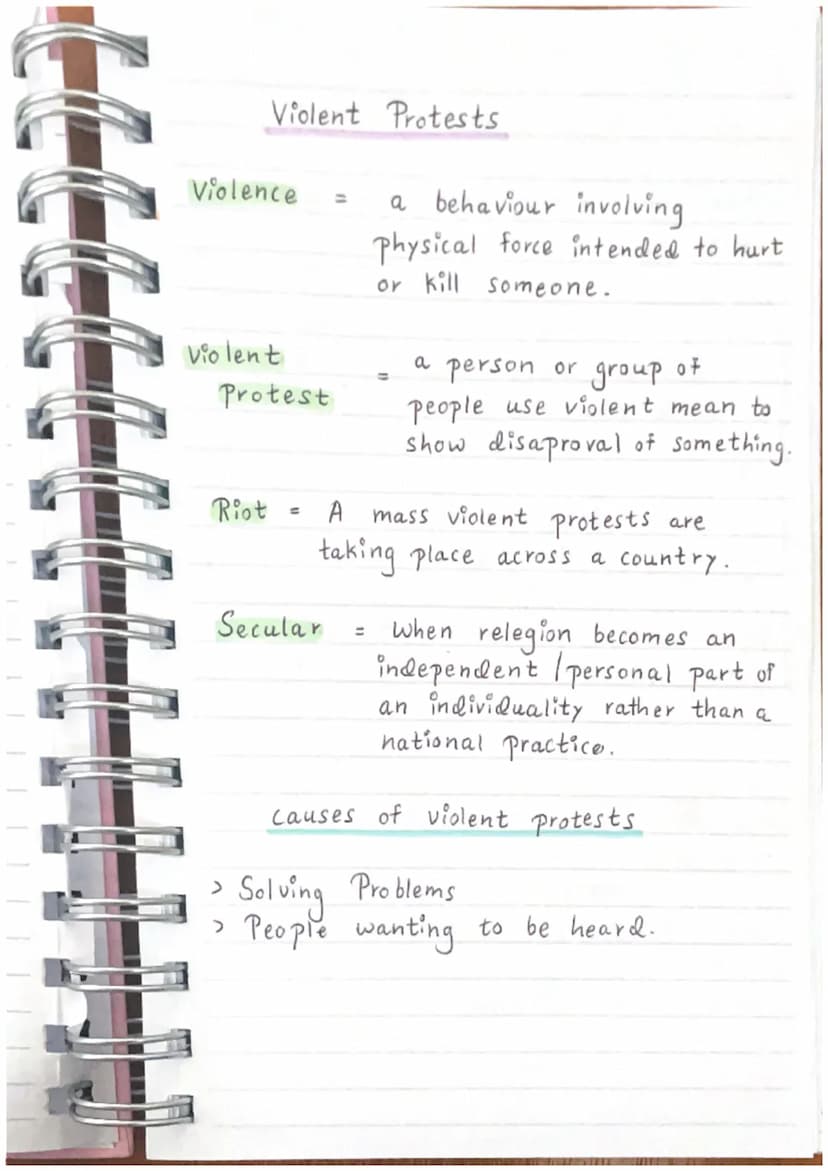 Violent Protests
Violence = a behaviour involving
physical force intended to hurt
or kill someone.
Violent
Protest = a person or group of
people use violent mean to
show disaproval of something.
Riot = A mass violent protests are
taking place across a country.
Secular = When relegion becomes an
independent / personal part of
an individuality rather than a
national practice.
causes of violent protests
> Solving Problems
> People wanting to be heard.